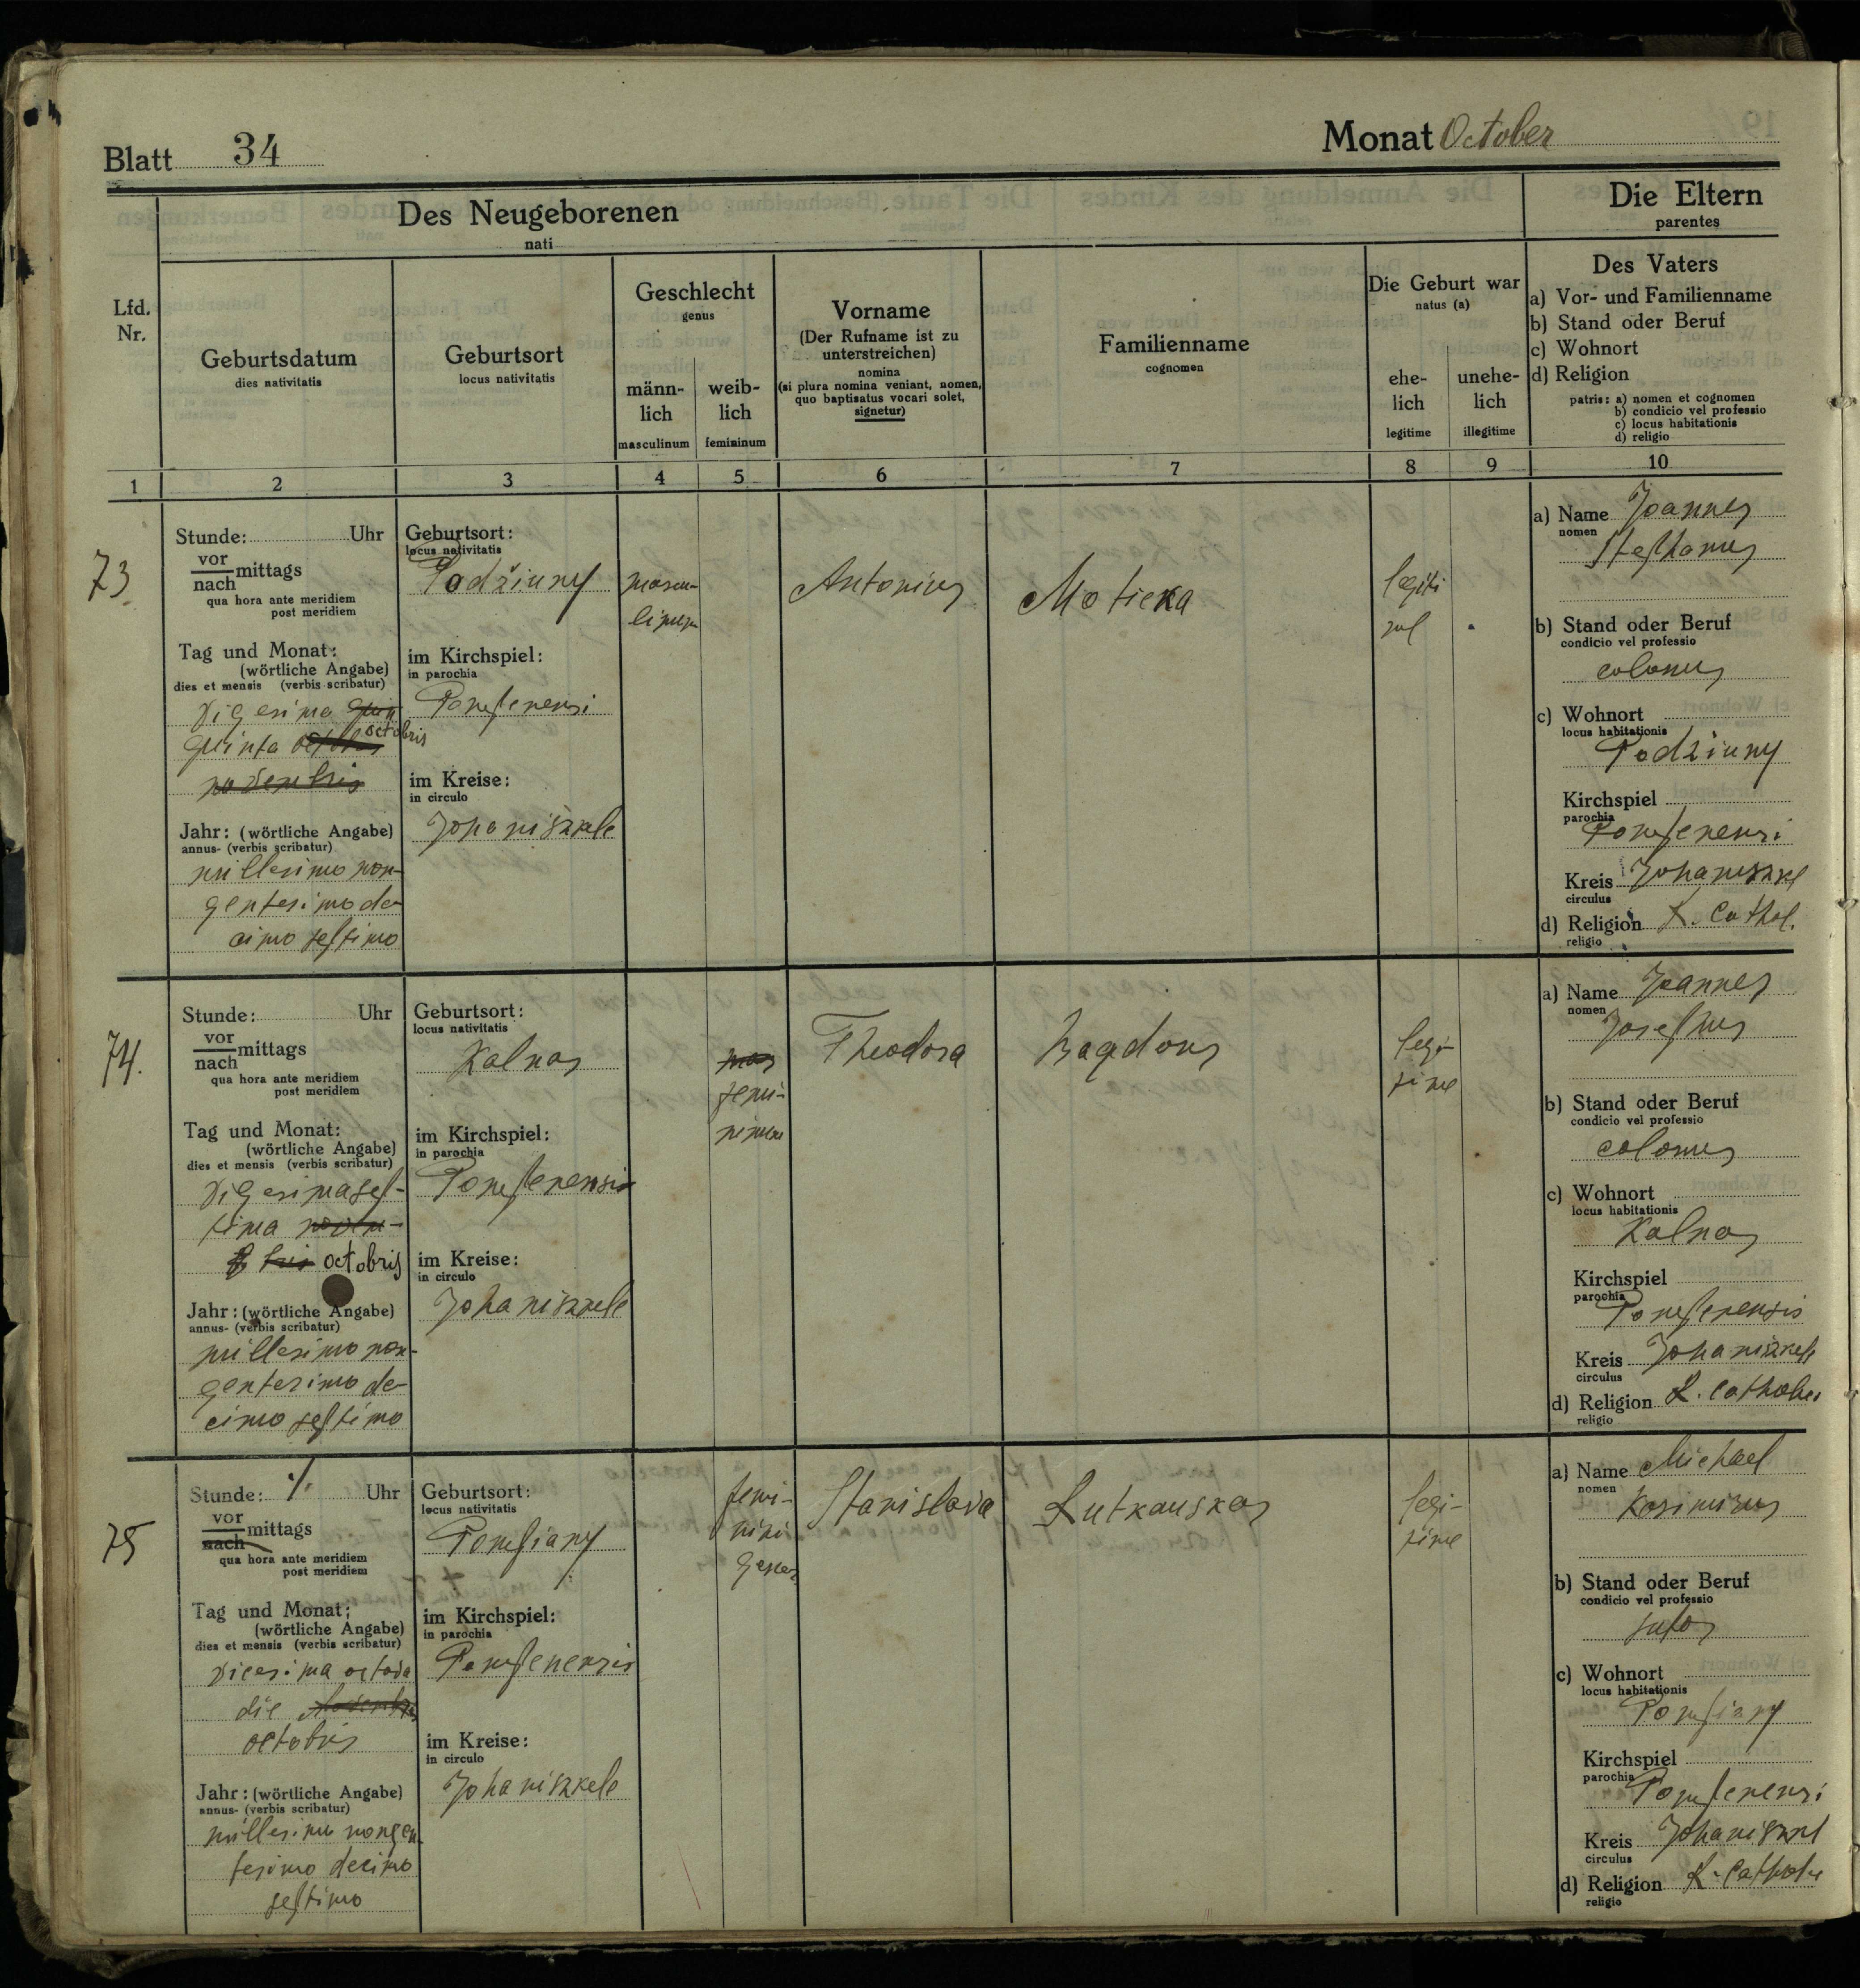 Blatt 34
Monat October
Des Neugeborenen
nati
Die Eltern
parentes
Lfd.
Nr.
Geburtsdatum
dies nativitatis
Geburtsort
locus nativitatis
Geschlecht
genus
männ-
lich
masculinum
weib-
lich
femininum
Vorname
(Der Rufname ist zu
unterstreichen)
nomina
(si plura nomina veniant, nomen,
quo baptisatus vocari solet,
signetur)
Familienname
cognomen
Die Geburt war
natus (a)
ehe-
lich
legitime
unehe-
lich
illegitime
Des Vaters
a) Vor- und Familienname
b) Stand oder Beruf
c) Wohnort
d) Religion
patris: a) nomen et cognomen
b) condicio vel professio
c) locus habitationis
d) religio
1 2 3 4 5 6 7 8 9 10
73
Stunde: Uhr
vor
nach mittags
qua hora ante meridiem
post meridiem
Tag und Monat:
(wörtliche Angabe)
dies et mensis (verbis scribatur)
vigesima quin
quinta octobris
novembris
Jahr: (wörtliche Angabe)
annus- (verbis scribatur)
millesimo non-
gentesimo de-
cimo septimo
Geburtsort:
locus nativitatis
Podžiuny
im Kirchspiel:
in parochia
Pompenensi
im Kreise:
in circulo
Johaniszkele
mascu-
linum
Antonius
Motieka
legiti
a) Name Joannes
nomen
Stephanus
b) Stand oder Beruf
condicio vel professio
colonus
c) Wohnort
locus habitationis
Podžiuny
Kirchspiel
parochia
Pompenensi
Kreis Johaniszkel
circulus
d) Religion R. Cathol.
religio
74.
Stunde: Uhr
vor
nach mittags
qua hora ante meridiem
post meridiem
Tag und Monat:
(wörtliche Angabe)
dies et mensis (verbis scribatur)
vigesima sep-
tima novem-
bris octobris
Jahr: (wörtliche Angabe)
annus- (verbis scribatur)
millesimo non-
gentesimo de-
cimo septimo
Geburtsort:
locus nativitatis
Kalnas
im Kirchspiel:
in parochia
Pompenensis
im Kreise:
in circulo
Johaniszkele
mas
femi-
ninum
Theodora
Bagdons
legi-
time
a) Name Joannes
nomen
Josephus
b) Stand oder Beruf
condicio vel professio
colonus
c) Wohnort
locus habitationis
Kalnas
Kirchspiel
parochia
Pompenensis
Kreis Johaniszkele
circulus
d) Religion R. Catholic
religio
75
Stunde: Uhr
vor
nach mittags
qua hora ante meridiem
post meridiem
Tag und Monat:
(wörtliche Angabe)
dies et mensis (verbis scribatur)
vicesima octava
die Novembris
octobris
Jahr: (wörtliche Angabe)
annus- (verbis scribatur)
millesimo nongen
tesimo decimo
septimo
Geburtsort:
locus nativitatis
Pompiany
im Kirchspiel:
in parochia
Pompenensis
im Kreise:
in circulo
Johaniszkele
femi-
nini
gener.
Stanislava
Rutkauskas
legi-
time
a) Name Michael
nomen
Kasimirus
b) Stand oder Beruf
condicio vel professio
c) Wohnort
locus habitationis
Pompiany
Kirchspiel
parochia
Pompenensi
Kreis Johaniszkel
circulus
d) Religion R. Cathol
religio